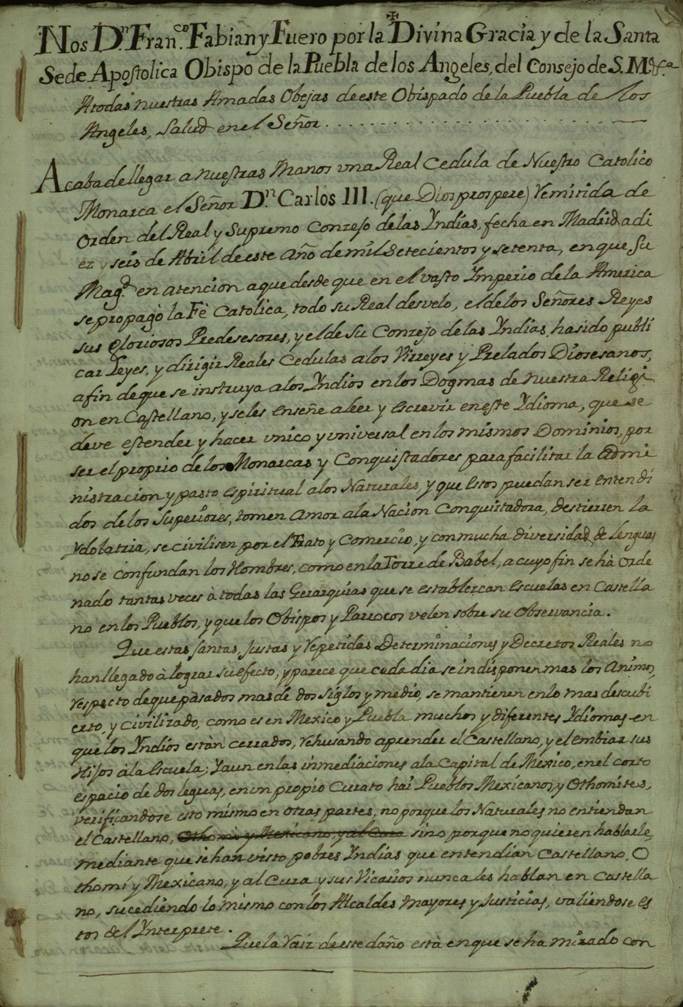 Nos Dn. Fran.co Fabian y Fuero por la Divina Gracia y de la Santa
Sede Apostolica Obispo de la Puebla de los Angeles, del Consejo de S. M. &.a
A todas nuestras Amadas Obejas de este Obispado de la Puebla de los
Angeles, Salud en el Señor.
Acaba de llegar a nuestras Manos una Real Cedula de Nuestro Catolico
Monarca el Señor Dn. Carlos III. (que Dios prospere) Remitida de
Orden del Real y Supremo Conzejo de las Yndias, fecha en Madrid a di
ez y seis de Abril de este Año de mil Setecientos y setenta, en que, Su
Mag.d en atencion a que desde que en el vasto Imperio de la America
se propagò la Fè Catolica, todo su Real desvelo, el de los Señores Reyes
sus Gloriosos Predesesores, y el de Su Conzejo de las Yndias, ha sido publi
car Leyes, y dirigir Reales Cedulas a los Virreyes y Prelados Diosesanos,
a fin de que se instruya a los Yndios en los Dogmas de nuestra Religi
on en Castellano, y se les enseñe a leer y escrevir en este Ydioma, que se
deve estender y hacer unico y universal en los mismos Dominios, por
ser el proprio de los Monarcas y Conquistadores para facilitar la Admi
nistracion y pasto espiritual a los Naturales, y que estos puedan ser entendi
dos de los Superiores, tomen Amor a la Nacion Conquistadora, destierren la
Ydolatria, se civilisen por el Trato y Comercio, y con mucha diversidad de lenguas
no se confundan los Hombres, como en la Torre de Babel, a cuyo fin se hà orde
nado tantas veces à todas las Gerarquias que se establezcan Escuelas en Castella
no en los Pueblos, y que los Obispos y Parrocos velen sobre su Observancia.
Que estas santas, Justas y Repetidas Determinaciones y Decretos Reales no
han llegado à lograr su efecto, y parece que cada dia se indisponen mas los Animos,
respecto de que pasados mas de dos Siglos y medio, se mantienen en lo mas descubi
erto, y civilizado, como es en Mexico y Puebla muchos y diferentes Ydiomas en
que los Yndios estàn cerrados, rehusando aprender el Castellano, y el embiar sus
Hijos à la Escuela; y aun en las inmediaciones a la Capital de Mexico, en el corto
espacio de dos leguas, en un propio Curato hai Pueblos Mexicanos, y Othomites,
verificandose esto mismo en otras partes, no porque los Naturales no entiendan
el Castellano, Othomi y Mexicano, y al Cura sino porque no quieren hablarle,
mediante que se han visto pobres Yndias que entendian Castellano, O
thomí y Mexicano, y al Cura y sus Vicarios nunca les hablan en Castella
no, sucediendo lo mismo con los Alcaldes Mayores y Justicias, valiendose es
tos del Interprete.
Que la Raiz de este daño està en que se ha mirado con